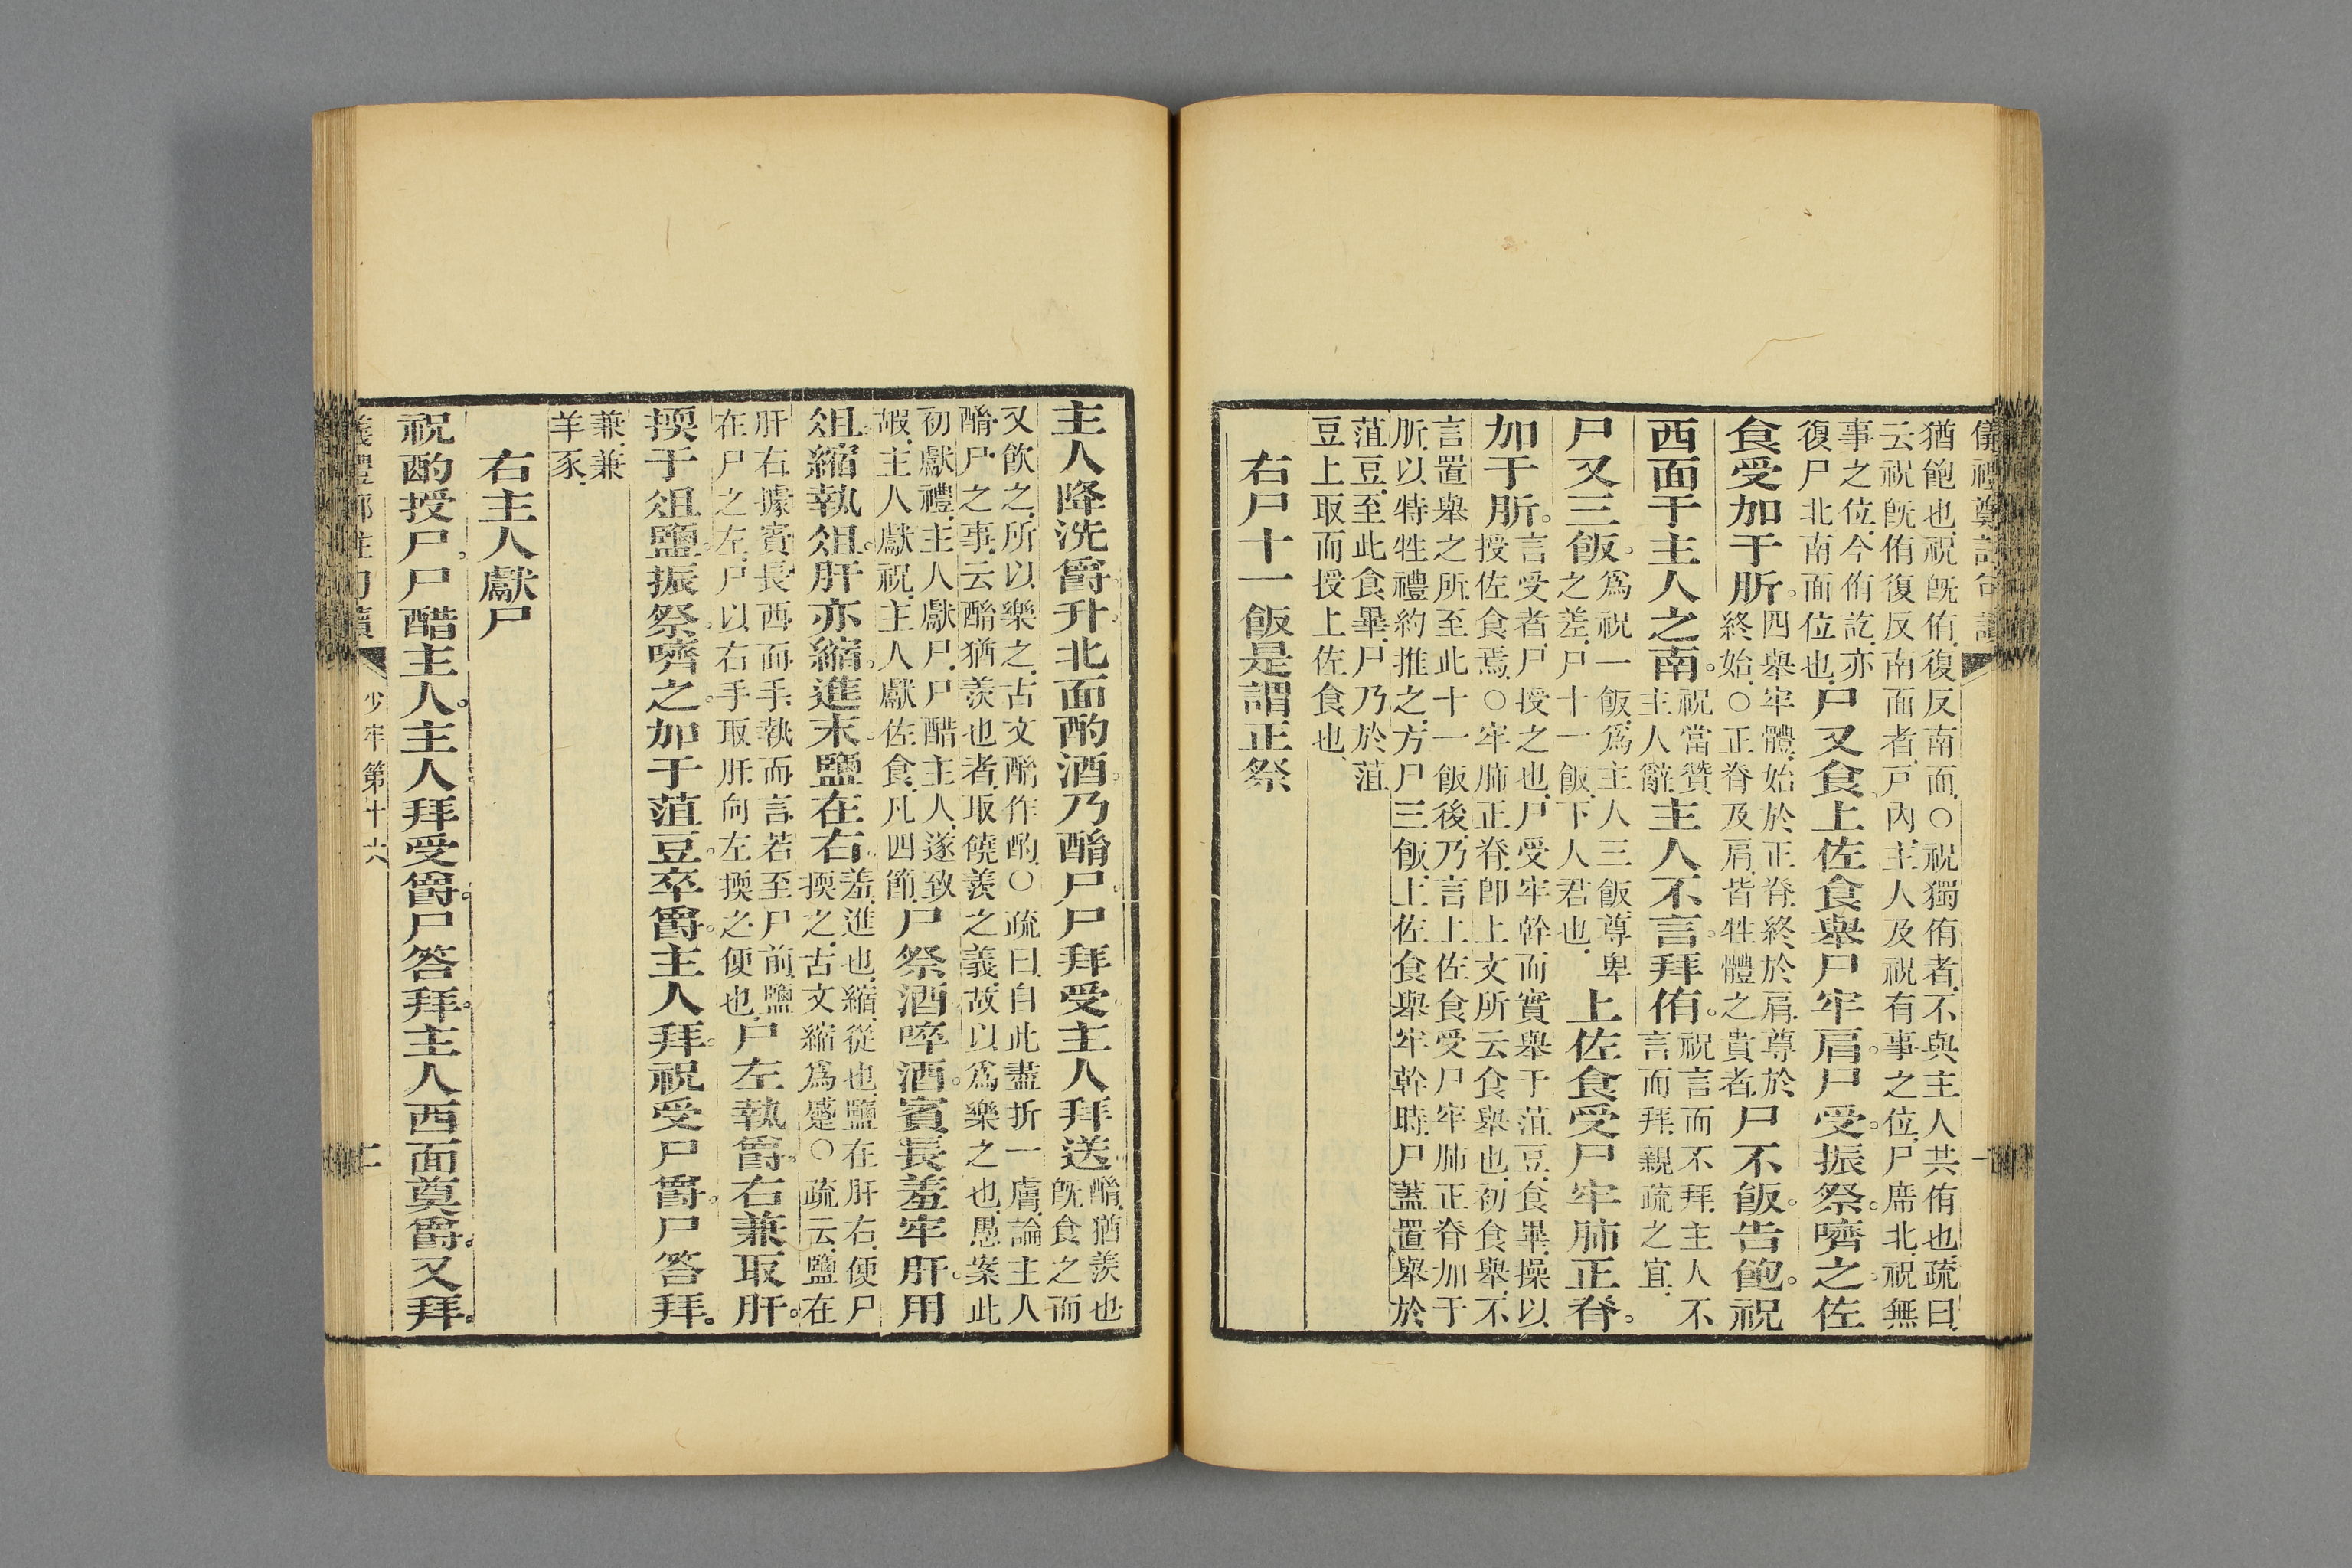 儀禮鄭註句讀
猶飽也祝既侑復反南面○祝獨侑者不與主人共侑也疏曰
云祝既侑復反南面者戶內主人及祝有事之位尸席北祝無
事之位今侑訖亦
復尸北南面位也
尸又食上佐食舉尸牢肩尸受振祭嚌之佐
食受加于肵
四舉牢體始於正脊終於肩尊於
終始○正脊及肩皆牲體之貴者
尸不飯告飽祝
西面于主人之南
祝當贊
主人辭
主人不言拜侑
祝言而不拜主人不
言而拜親疏之宜
尸又三飯
爲祝一飯爲主人三飯尊卑
之差尸十一飯下人君也
上佐食受尸牢肺正脊
加于肵
言受者尸授之也尸受牢幹而實舉于菹豆食畢操以
授佐食焉○牢肺正脊卽上文所云食舉也初食舉不
言置舉之所至此十一飯後乃言上佐食受尸牢肺正脊加于
肵以特牲禮約推之方尸三飯上佐食舉牢幹時尸蓋置舉於
菹豆至此食畢尸乃於菹
豆上取而授上佐食也
右尸十一飯是謂正祭
主人降洗爵升北面酌酒乃酳尸尸拜受主人拜送
酳猶羨也
既食之而
又飲之所以樂之古文酳作酌○疏曰自此盡折一膚論主人
酳尸之事云酳猶羨也者取饒羨之義故以爲樂之也愚案此
初獻禮主人獻尸尸醋主人遂致
嘏主人獻祝主人獻佐食凡四節
尸祭酒啐酒賓長羞牢肝用
俎縮執俎肝亦縮進末鹽在右
羞進也縮從也鹽在肝右便尸
㨎之古文縮爲蹙○疏云鹽在
肝右據賓長西面手執而言若至尸前鹽
在尸之左尸以右手取肝向左㨎之便也
尸左執爵右兼取肝
㨎于俎鹽振祭嚌之加于菹豆卒爵主人拜祝受尸爵尸答拜
兼兼
羊豕
右主人獻尸
祝酌授尸尸醋主人主人拜受爵尸答拜主人西面奠爵又拜
儀禮鄭註句讀
少牢第十六